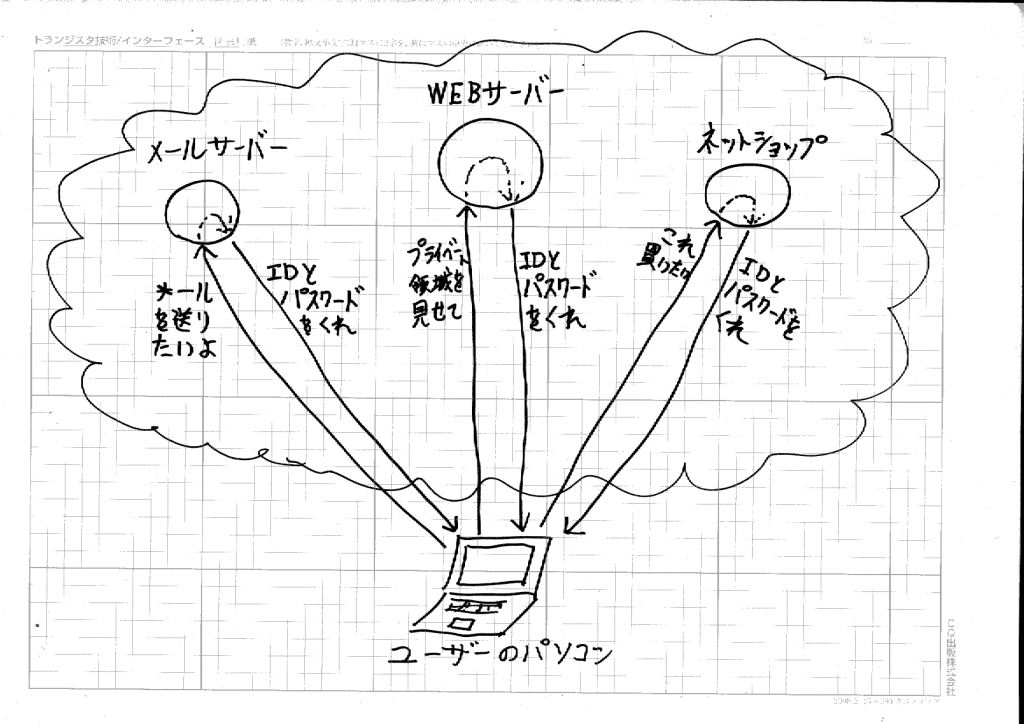 トランジスタ技術/インターフェース
WEBサーバー
メールサーバー
ネットショップ
メール
を送り
たいよ
IDと
パスワード
をくれ
プライベート
領域を
見せて
IDと
パスワード
をくれ
これ
買いたい
IDと
パスワードを
くれ
ユーザーのパソコン
CQ出版株式会社